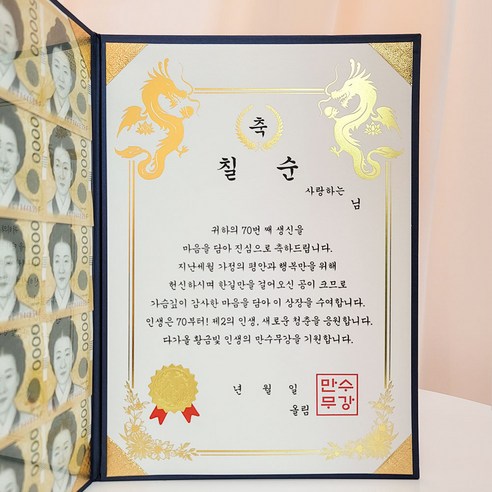 축
칠 순
사랑하는
님
귀하의 70번 째 생신을
마음을 담아 진심으로 축하드립니다.
지난세월 가정의 평안과 행복만을 위해
헌신하시며 한길만을 걸어오신 공이 크므로
가슴깊이 감사한 마음을 담아 이 상장을 수여합니다.
인생은 70부터! 제2의 인생, 새로운 청춘을 응원합니다.
다가올 황금빛 인생의 만수무강을 기원합니다.
년 월 일
올림
만수
무강
50000
50000
50000
50000
50000